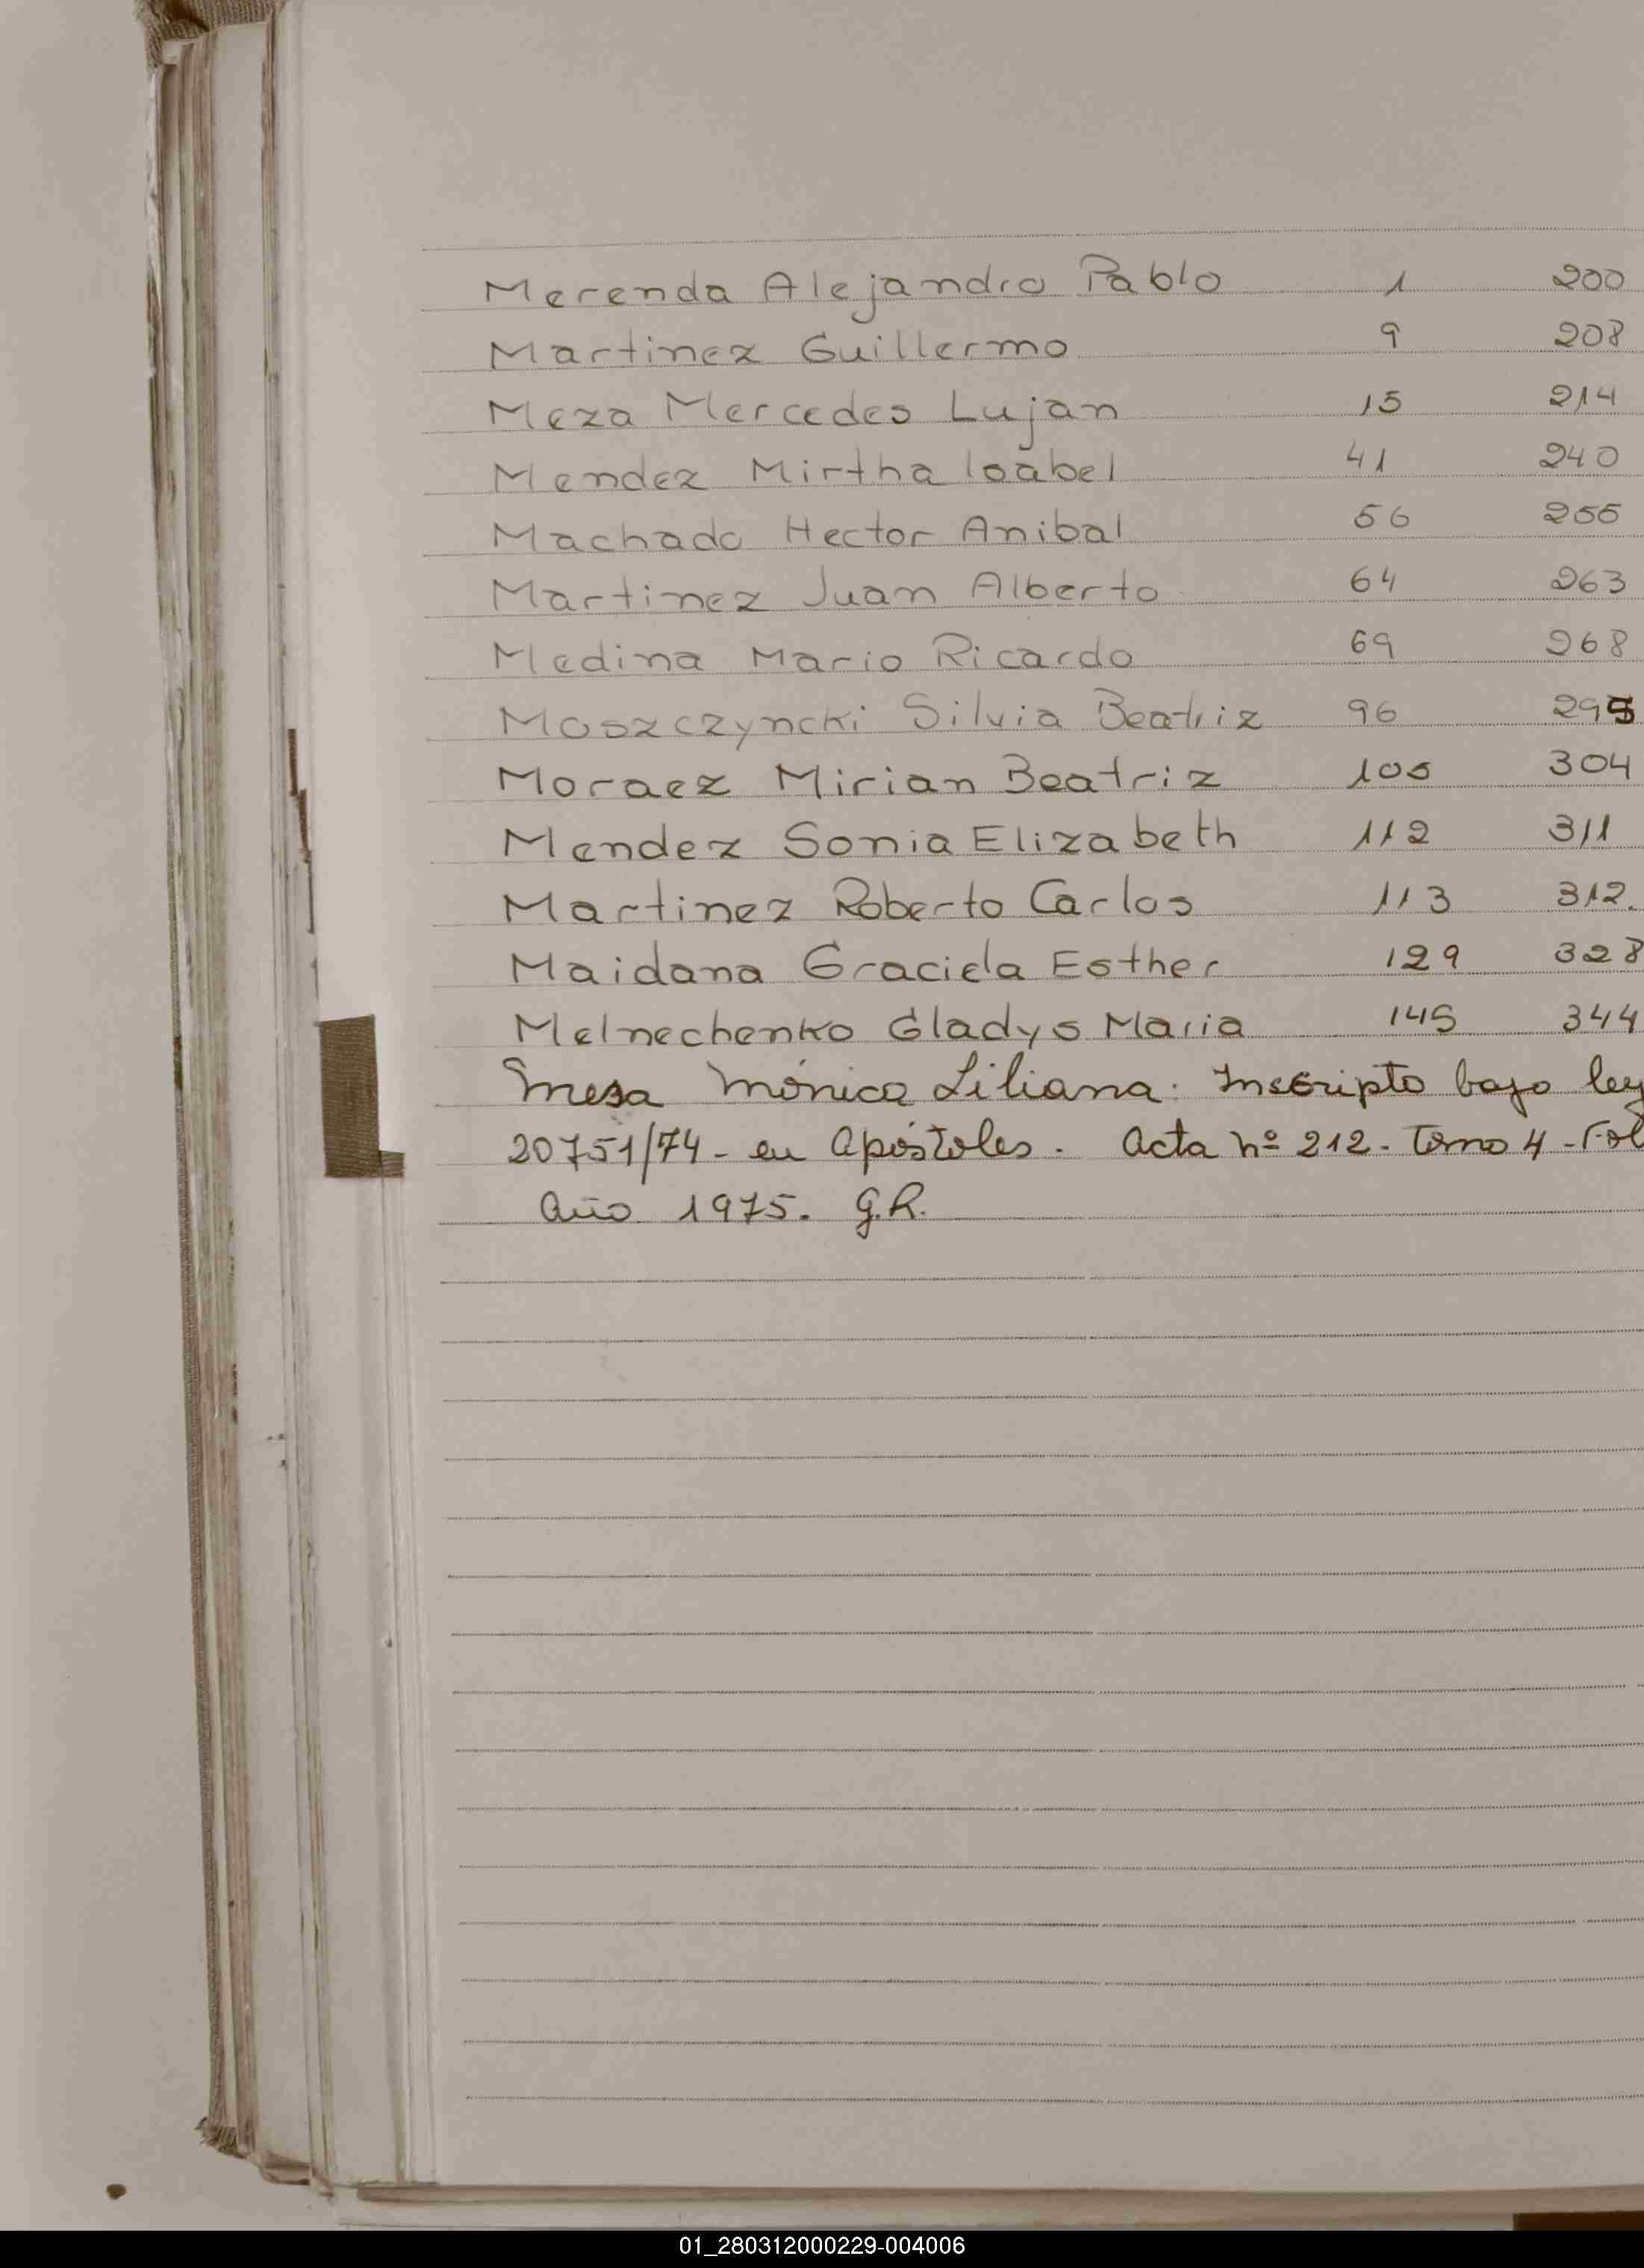 Merenda Alejandro Pablo 1 200
Martinez Guillermo 9 208
Meza Mercedes Lujan 15 214
Mendez Mirtha Isabel 41 240
Machado Hector Anibal 56 255
Martinez Juan Alberto 64 263
Medina Mario Ricardo 69 268
Moszczyncki Silvia Beatriz 96 295
Moraez Mirian Beatriz 105 304
Mendez Sonia Elizabeth 112 311
Martinez Roberto Carlos 113 312.
Maidana Graciela Esther 129 328
Melnechenko Gladys Maria 145 344
Mesa Mónica Liliana. Inscripto bajo ley
20751/74 - en Apóstoles. Acta nº 212 - Tomo 4 - Fol
Año 1975. G.R.
01_280312000229-004006